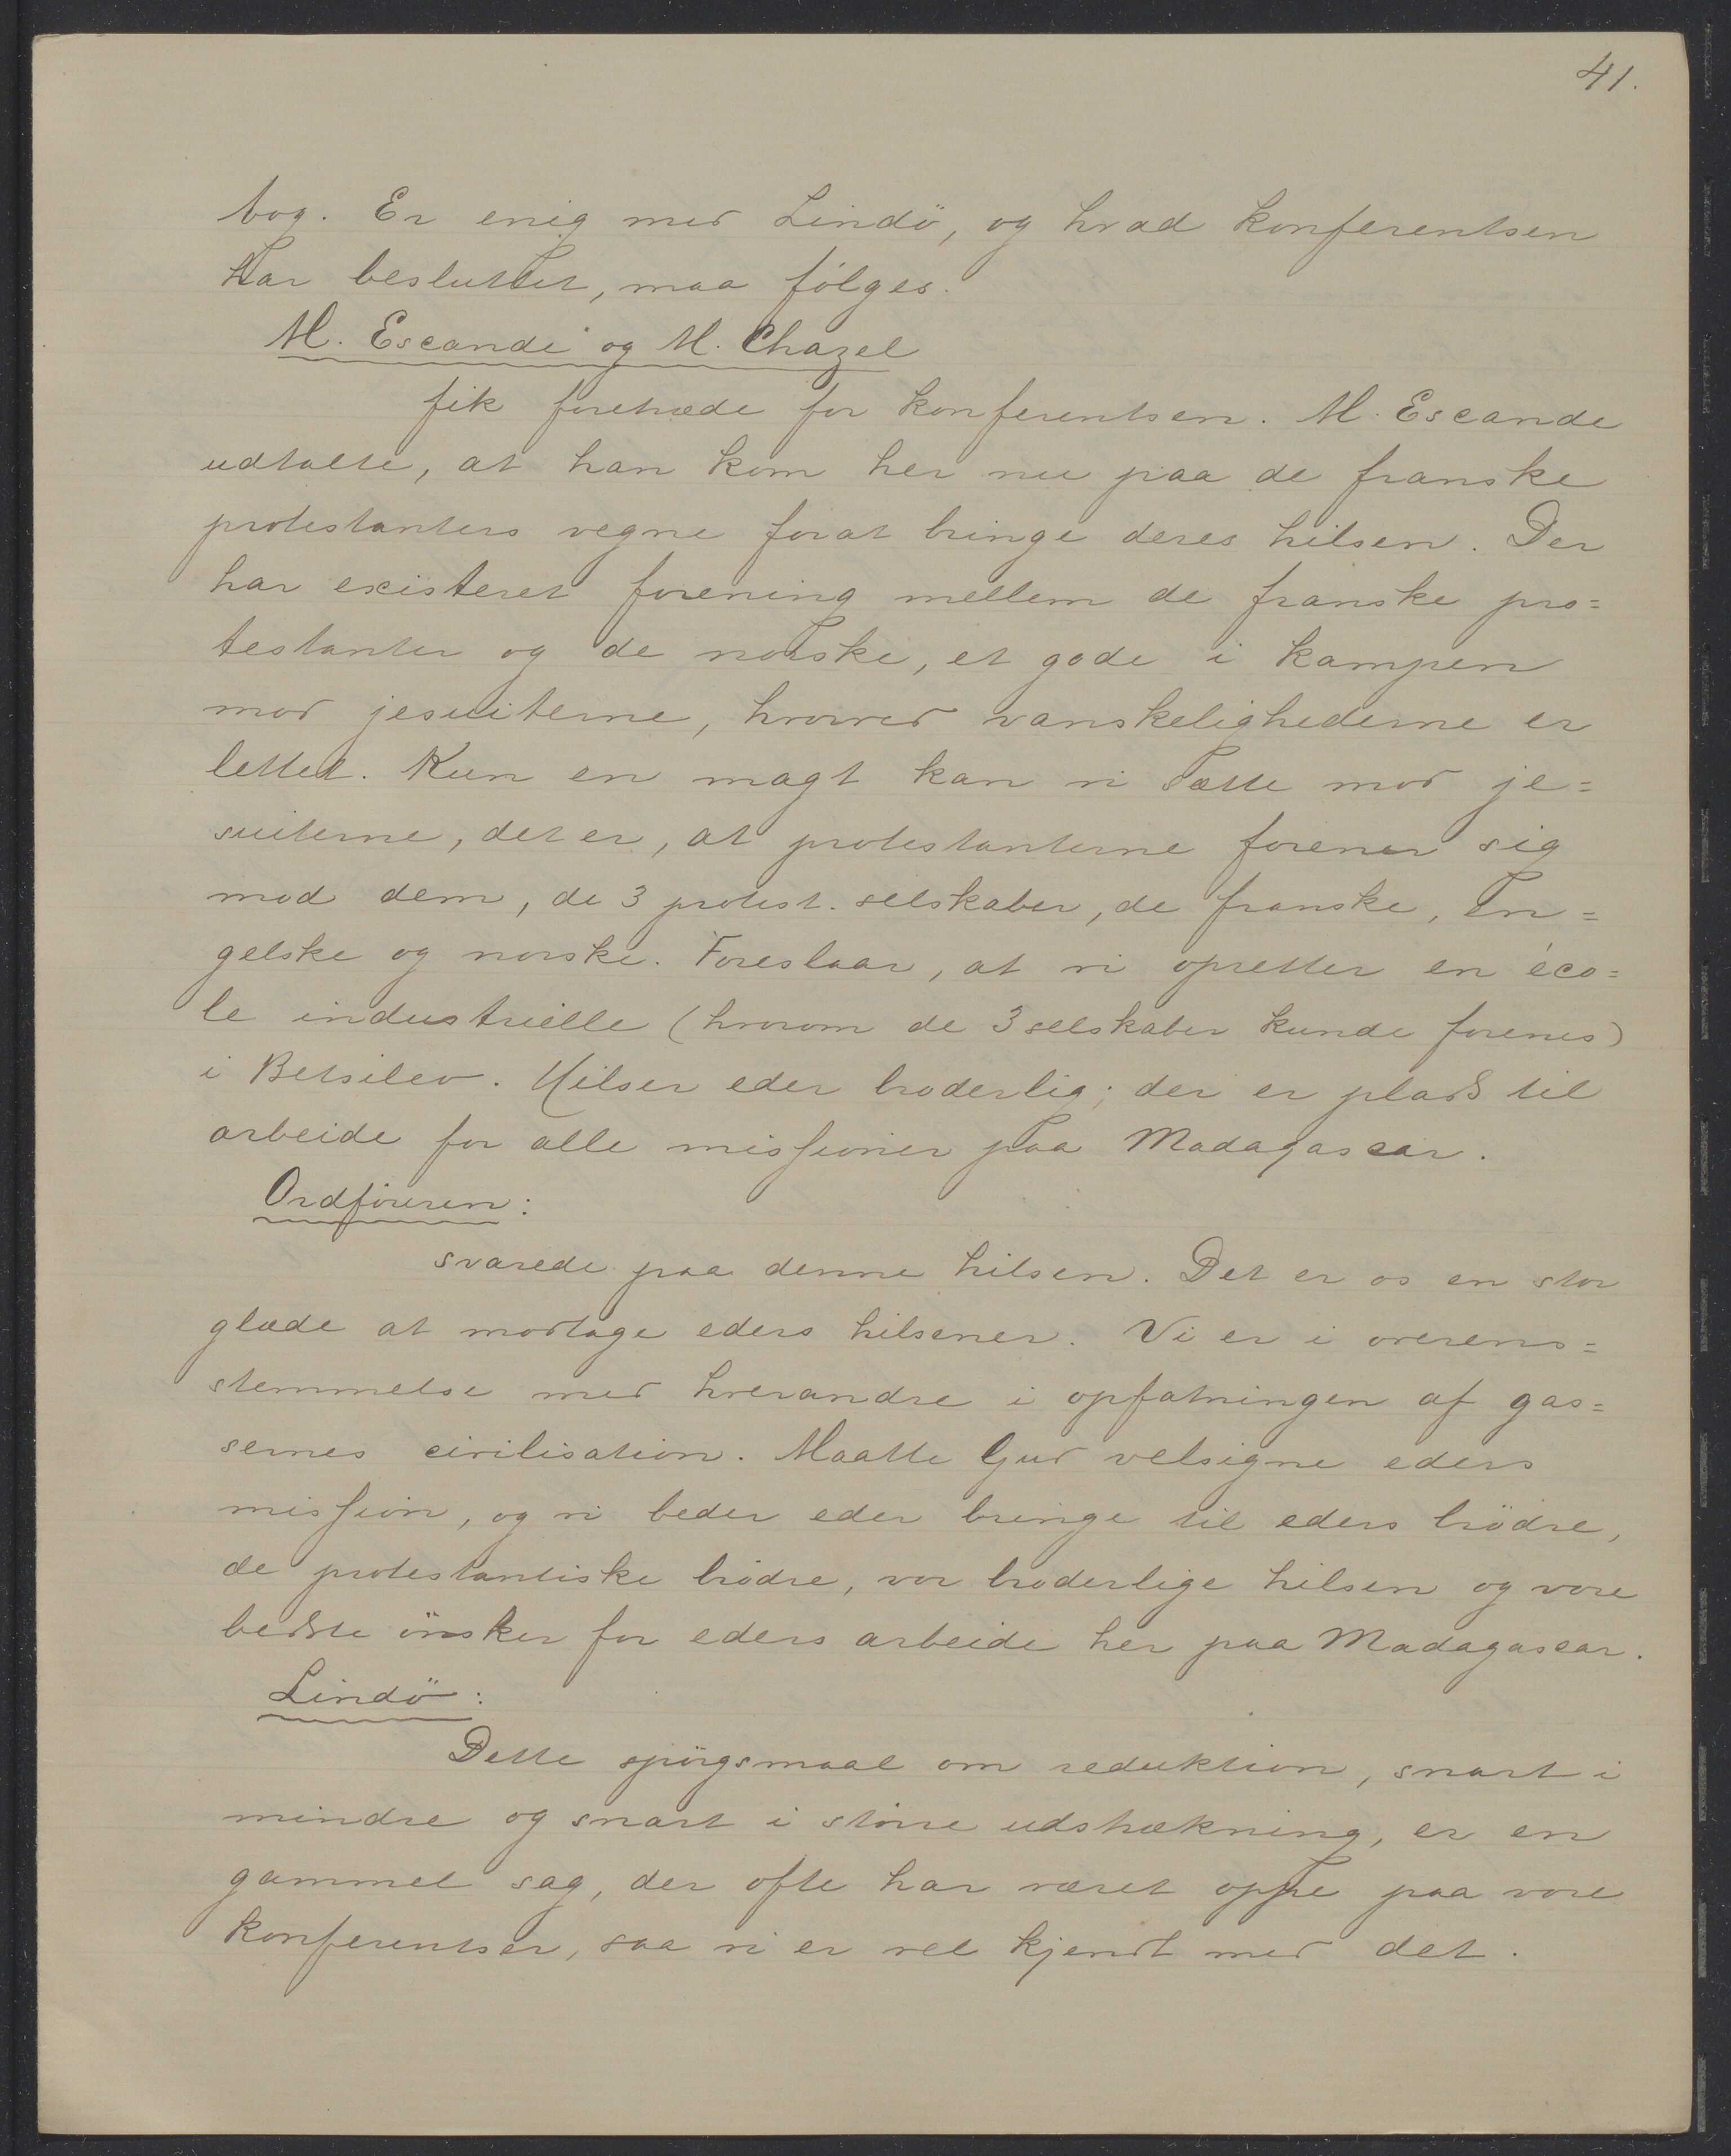 41.
bog. Er enig med Lindö, og hvad konferentsen
har besluttet, maa følges.
M. Escande og M. Chazel
fik foretræde for konferentsen. M. Escande
udtalte, at han kom her nu paa de franske
protestanters vegne forat bringe deres hilsen. Der
har existeret forening mellem de franske pro=
testanter og de norske, et gode i kampen
mod jesuiterne, hvorved vanskelighederne er
lettet. Kun en magt kan vi sætte mod je=
suiterne, det er, at protestanterne forener sig
mod dem, de 3 protest. selskaber, de franske, en=
gelske og norske. Foreslaar, at vi opretter en éco=
le industrielle (hvorom de 3 selskaber kunde forenes)
i Betsileo. Hilser eder broderlig; der er plads til
arbeide for alle missioner paa Madagascar.
Ordføreren:
svarede paa denne hilsen. Det er os en stor
glæde at modtage eders hilsener. Vi er i overens=
stemmelse med hverandre i opfatningen af gas=
sernes civilisation. Maatte Gud velsigne eders
mission, og vi beder eder bringe til eders brödre,
de protestantiske brödre, vor broderlige hilsen og vore
bedste önsker for eders arbeide her paa Madagascar.
Lindö:
Dette spörgsmaal om reduktion, snart i
mindre og snart i större udstrækning, er en
gammel sag, der ofte har været oppe paa vore
konferentser, saa vi er vel kjendt med det.